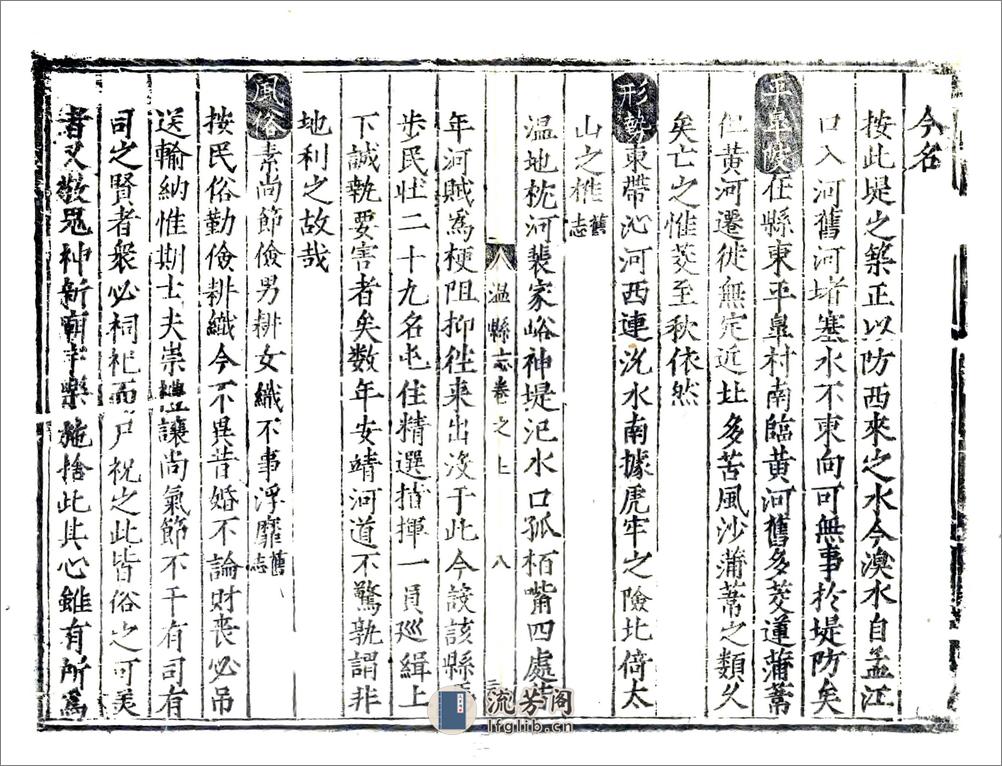 今名
按此堤之築正以防西來之水今澳水自孟江
口入河舊河堵塞水不東向可無事於堤防矣
平皐陂在縣東平皐村南臨黃河舊多菱蓮蒲葦
但黃河遷徙無定近北多苦風沙蒲葦之類久
矣亡之惟菱至秋依然
形勢東帶沁河西連沇水南據虎牢之險北倚太
山之樵舊志
溫地枕河裴家峪神堤汜水口孤栢嘴四處
溫縣志卷之上 八
年河賊為梗阻抑徃來出沒于此今該縣
步民壯二十九名屯住精選指揮一員廵緝上
下誠執要害者矣数年安靖河道不驚孰謂非
地利之故哉
風俗素尚節儉男耕女織不事浮靡舊志
按民俗勤儉耕織今不異昔婚不論財喪必吊
送輸納惟期士夫崇禮讓尚氣節不干有司有
司之賢者衆必祠祀而尸祝之此皆俗之可美
者又敬鬼神新廟宇樂施捨此其心雖有所為
流芳阁
lfglib.cn